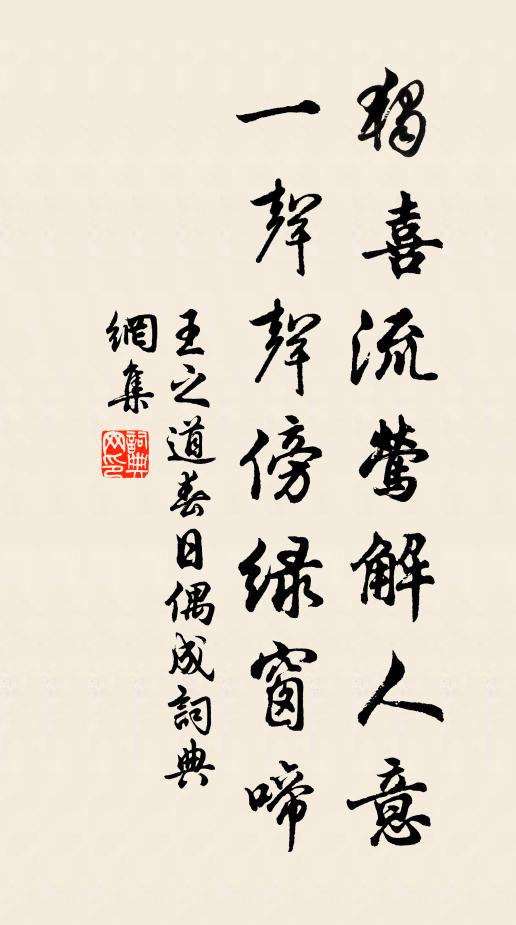 獨喜流鶯解人意
一聲聲傍綠窗啼
王之道春日偶成詞典
網集
詞典網印